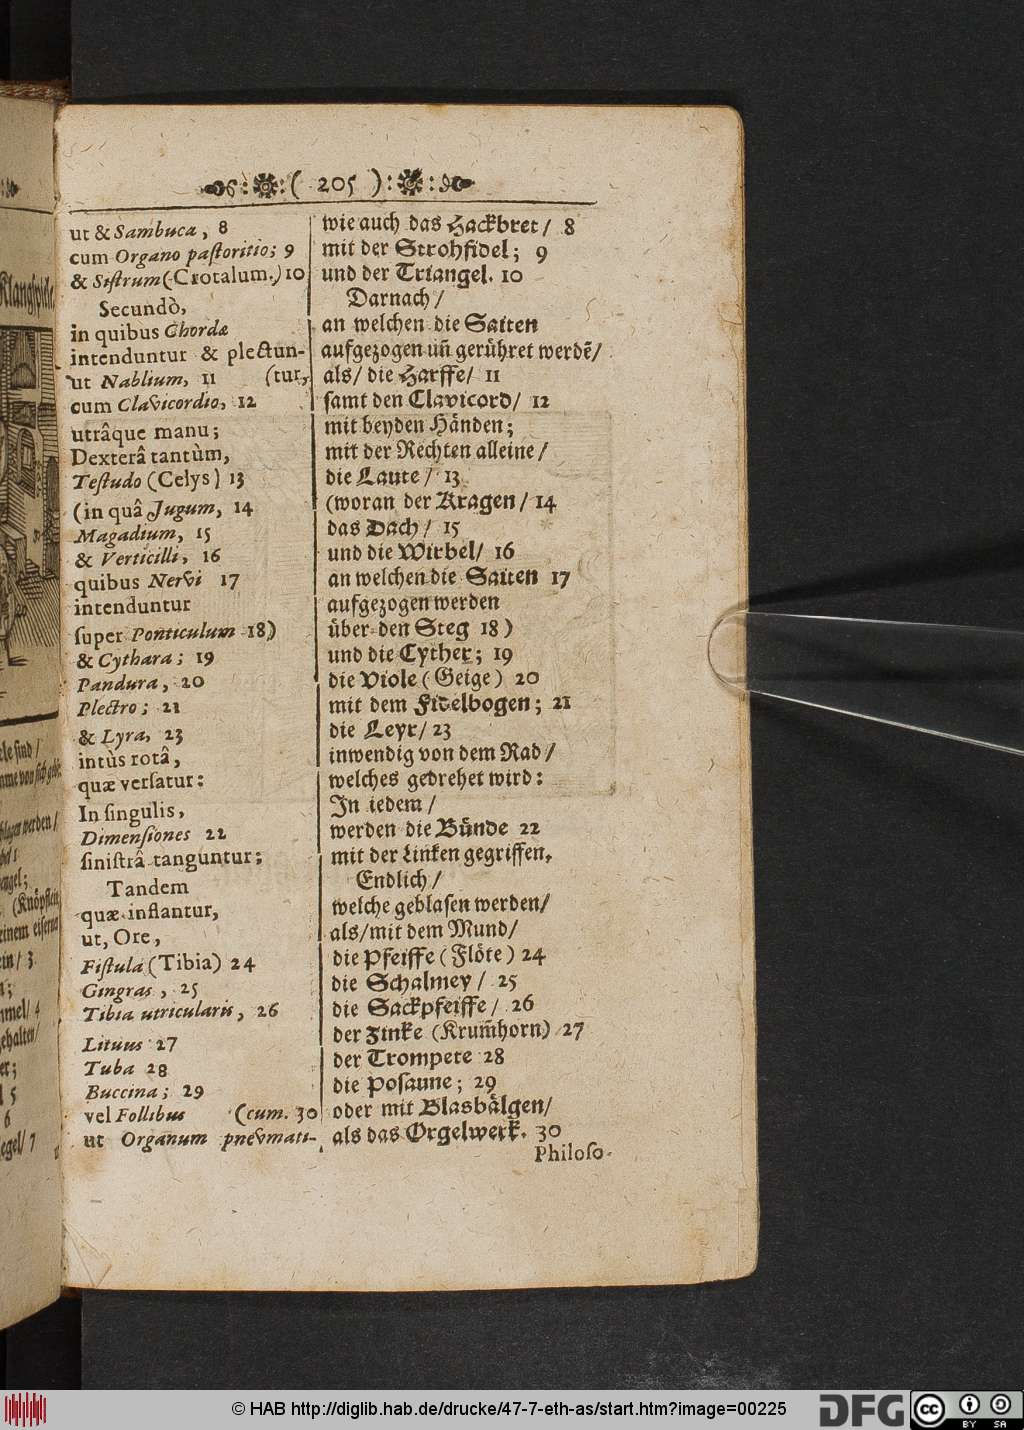 ( 205 )
ut & Sambuca, 8
cum Organo paſtoritio; 9
& Siſtrum (Crotalum.) 10
Secundò,
in quibus Chordæ
intenduntur & plectun-
ut Nablium, 11 (tur,
cum Clavicordio, 12
utrâque manu;
Dexterâ tantùm,
Teſtudo (Celys) 13
(in quâ Jugum, 14
Magadium, 15
& Verticilli, 16
quibus Nervi 17
intenduntur
ſuper Ponticulum 18)
& Cythara; 19
Pandura, 20
Plectro; 21
& Lyra, 23
intùs rotâ,
quæ verſatur:
In ſingulis,
Dimenſiones 22
ſiniſtrâ tanguntur;
Tandem
quæ inflantur,
ut, Ore,
Fiſtula (Tibia) 24
Gingras, 25
Tibia utricularis, 26
Lituus 27
Tuba 28
Buccina; 29
vel Follibus (cum. 30
ut Organum pnevmati-
wie auch das Hackbret/ 8
mit der Strohfidel; 9
und der Triangel. 10
Darnach/
an welchen die Saiten
aufgezogen uñ gerühret werdē/
als/ die Harffe/ 11
ſamt den Clavicord/ 12
mit beyden Händen;
mit der Rechten alleine/
die Laute/ 13
(woran der Kragen/ 14
das Dach/ 15
und die Wirbel/ 16
an welchen die Saiten 17
aufgezogen werden
über den Steg 18)
und die Cyther; 19
die Viole (Geige) 20
mit dem Fidelbogen; 21
die Leyr/ 23
inwendig von dem Rad/
welches gedrehet wird:
In iedem/
werden die Bünde 22
mit der Linken gegriffen.
Endlich/
welche geblaſen werden/
als/mit dem Mund/
die Pfeiffe (Flöte) 24
die Schalmey/ 25
die Sackpfeiffe/ 26
der Zinke (Krum̃horn) 27
der Trompete 28
die Poſaune; 29
oder mit Blasbälgen/
als das Orgelwerk. 30
Philoſo-
© HAB http://diglib.hab.de/drucke/47-7-eth-as/start.htm?image=00225
DFG
cc BY SA